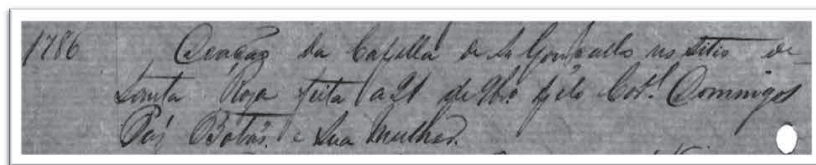 1786 Doação da Capella de S. Gonçallo no sitio de
Santa Roza feita a 21 de 9bro pelo Cor.el Domingos
Paz Botão e Sua mulher.